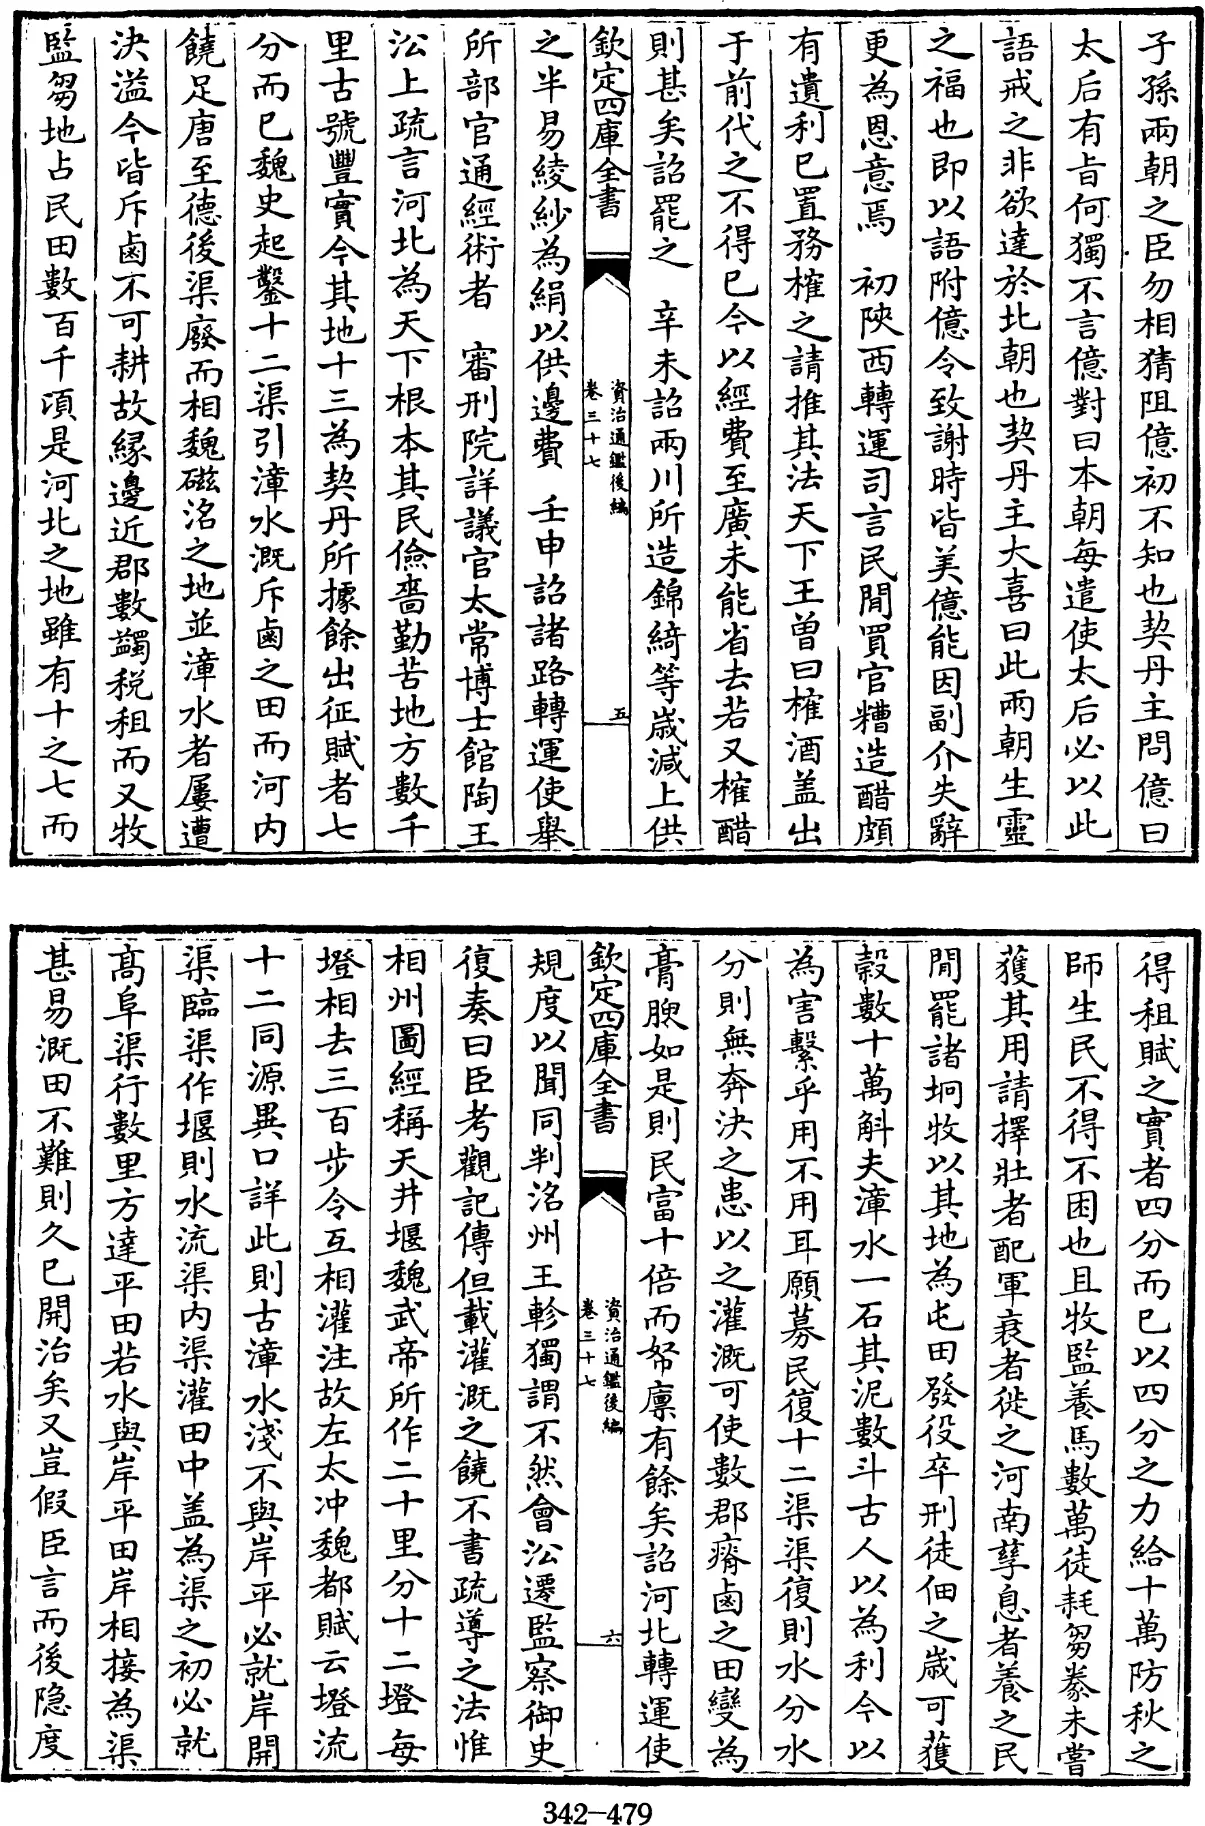 子孫兩朝之臣勿相猜阻億初不知也契丹主問億曰
太后有㫖何獨不言億對曰本朝每遣使太后必以此
語戒之非欲達於北朝也契丹主大喜曰此兩朝生靈
之福也即以語附億令致謝時皆美億能因副介失辭
更為恩意焉　初陜西轉運司言民閒買官糟造醋頗
有遺利已置務榷之請推其法天下王曾曰榷酒盖出
于前代之不得已今以經費至廣未能省去若又榷醋
則甚矣詔罷之　辛未詔兩川所造錦綺等歳減上供
欽定四庫全書
資治通鑑後編
卷三十七
五
之半易綾紗為絹以供邊費　壬申詔諸路轉運使舉
所部官通經術者　審刑院詳議官太常博士館陶王
沿上疏言河北為天下根本其民儉嗇勤苦地方數千
里古號豐實今其地十三為契丹所據餘出征賦者七
分而已魏史起鑿十二渠引漳水溉斥鹵之田而河内
饒足唐至德後渠廢而相魏磁洺之地並漳水者屢遭
決溢今皆斥鹵不可耕故縁邊近郡數蠲税租而又牧
監芻地占民田數百千頃是河北之地雖有十之七而
得租賦之實者四分而已以四分之力給十萬防秋之
師生民不得不困也且牧監養馬數萬徒耗芻豢未嘗
獲其用請擇壯者配軍衰者徙之河南孳息者養之民
閒罷諸坰牧以其地為屯田發役卒刑徒佃之歳可獲
榖數十萬斛夫漳水一石其泥數斗古人以為利今以
為害繫乎用不用耳願募民復十二渠渠復則水分水
分則無奔決之患以之灌溉可使數郡瘠鹵之田變為
膏腴如是則民富十倍而帑廪有餘矣詔河北轉運使
欽定四庫全書
資治通鑑後編
卷三十七
六
規度以聞同判洺州王軫獨謂不然會沿遷監察御史
復奏曰臣考觀記傳但載灌溉之饒不書疏導之法惟
相州圖經稱天井堰魏武帝所作二十里分十二墱每
墱相去三百步令互相灌注故左太冲魏都賦云墱流
十二同源異口詳此則古漳水淺不與岸平必就岸開
渠臨渠作堰則水流渠内渠灌田中盖為渠之初必就
髙阜渠行數里方達平田若水與岸平田岸相接為渠
甚易溉田不難則久已開治矣又豈假臣言而後隐度
342-479